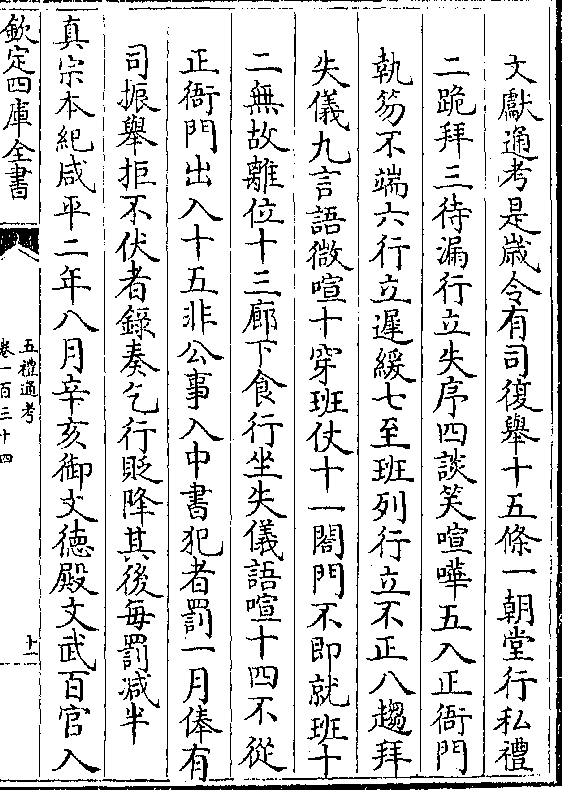 文獻通考是嵗令有司復舉十五條一朝堂行私禮
二跪拜三待漏行立失序四談笑喧嘩五入正衙門
執笏不端六行立遲緩七至班列行立不正八趨拜
失儀九言語微喧十穿班仗十一閤門不即就班十
二無故離位十三廊下食行坐失儀語喧十四不從
正衙門出入十五非公事入中書犯者罰一月俸有
司振舉拒不伏者錄奏乞行貶降其後每罰減半
真宗本紀咸平二年八月辛亥御文德殿文武百官入
欽定四庫全書
五禮通考
卷一百三十四
十一